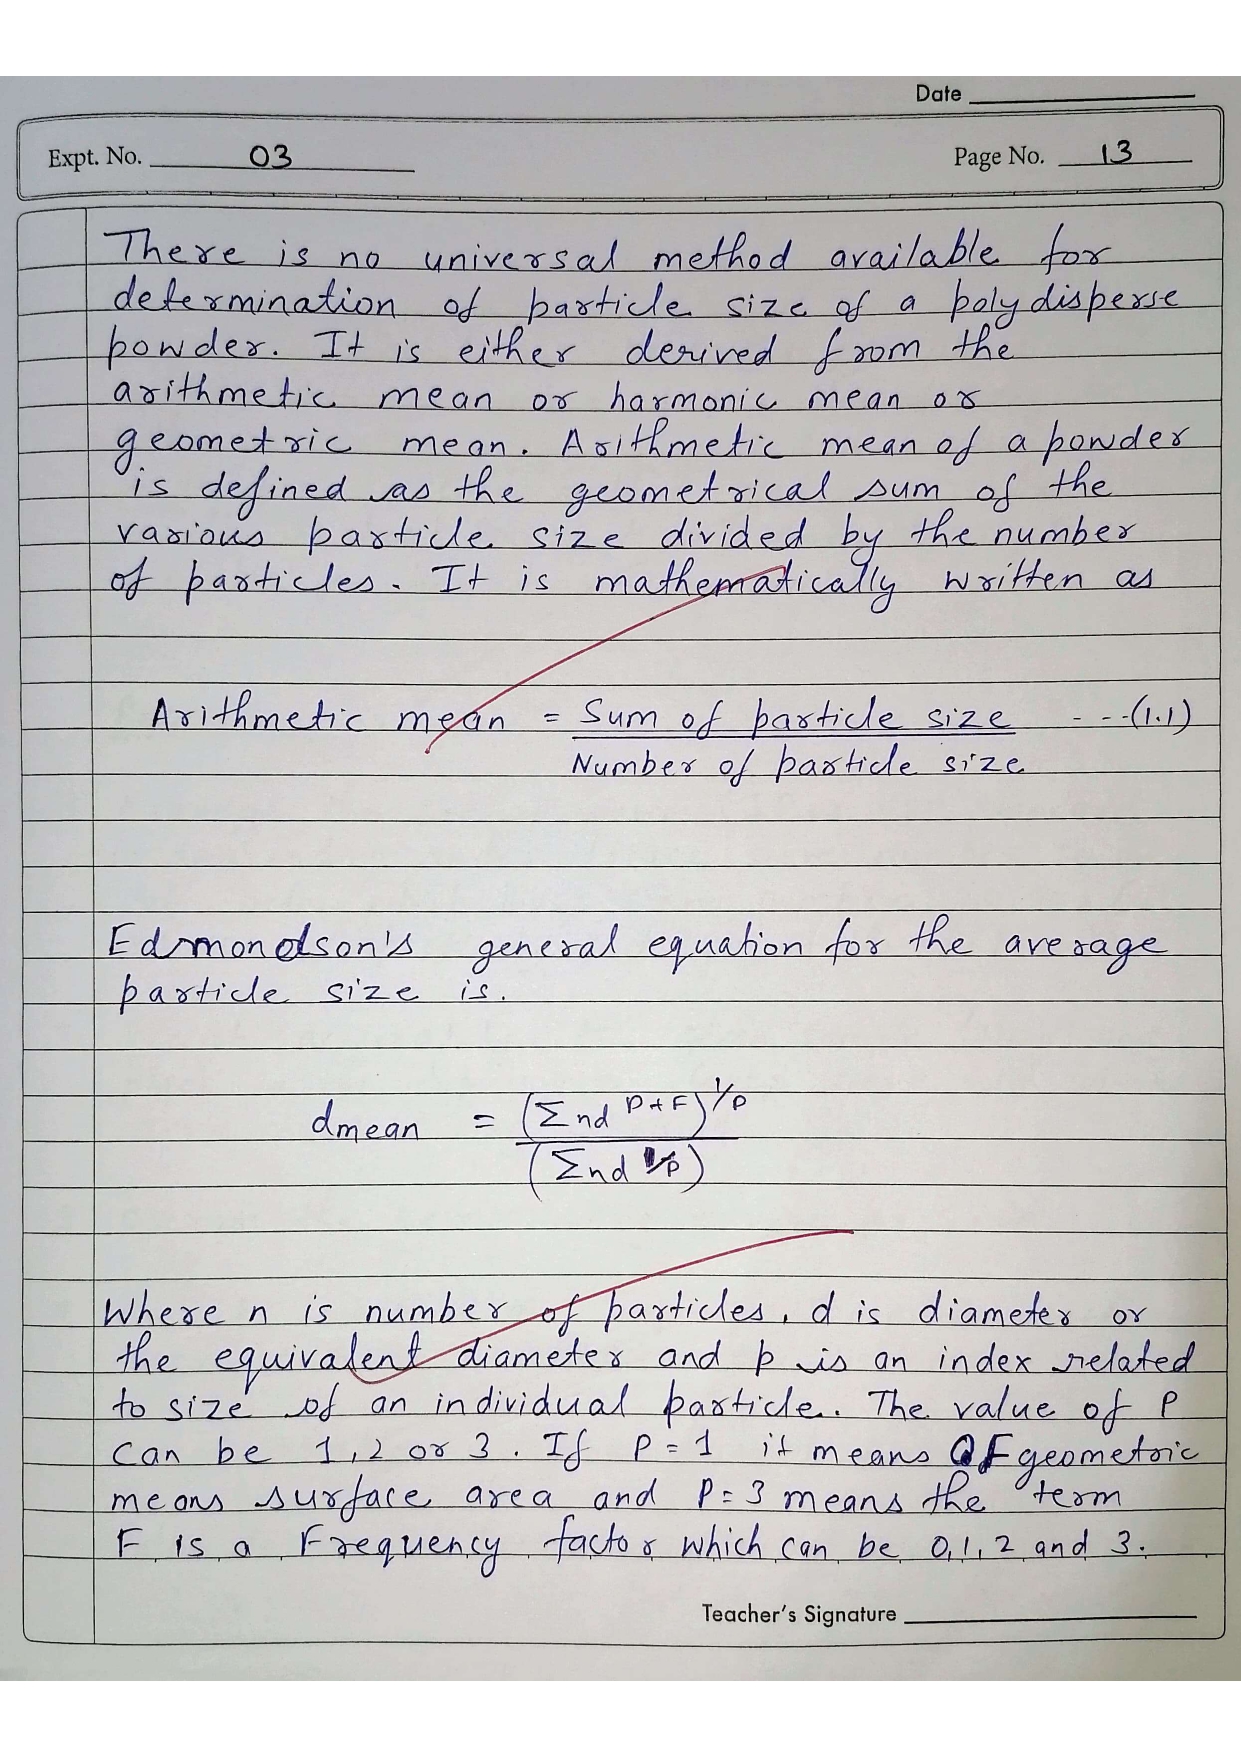 Date
Expt. No. 03 Page No. 13
There is no universal method available for
determination of particle size of a polydisperse
powder. It is either derived from the
arithmetic mean or harmonic mean or
geometric mean. Arithmetic mean of a powder
is defined as the geometrical sum of the
various particle size divided by the number
of particles. It is mathematically written as
Arithmetic mean = Sum of particle size ---(1.1)
Number of particle size
Edmondson's general equation for the average
particle size is.
dmean = (Σnd P+F)1/P
(Σnd 1/P)
Where n is number of particles, d is diameter or
the equivalent diameter and p is an index related
to size of an individual particle. The value of P
can be 1,2 or 3. If P=1 it means OF geometric
means surface area and P=3 means the term
F is a Frequency factor which can be 0,1,2 and 3.
Teacher's Signature